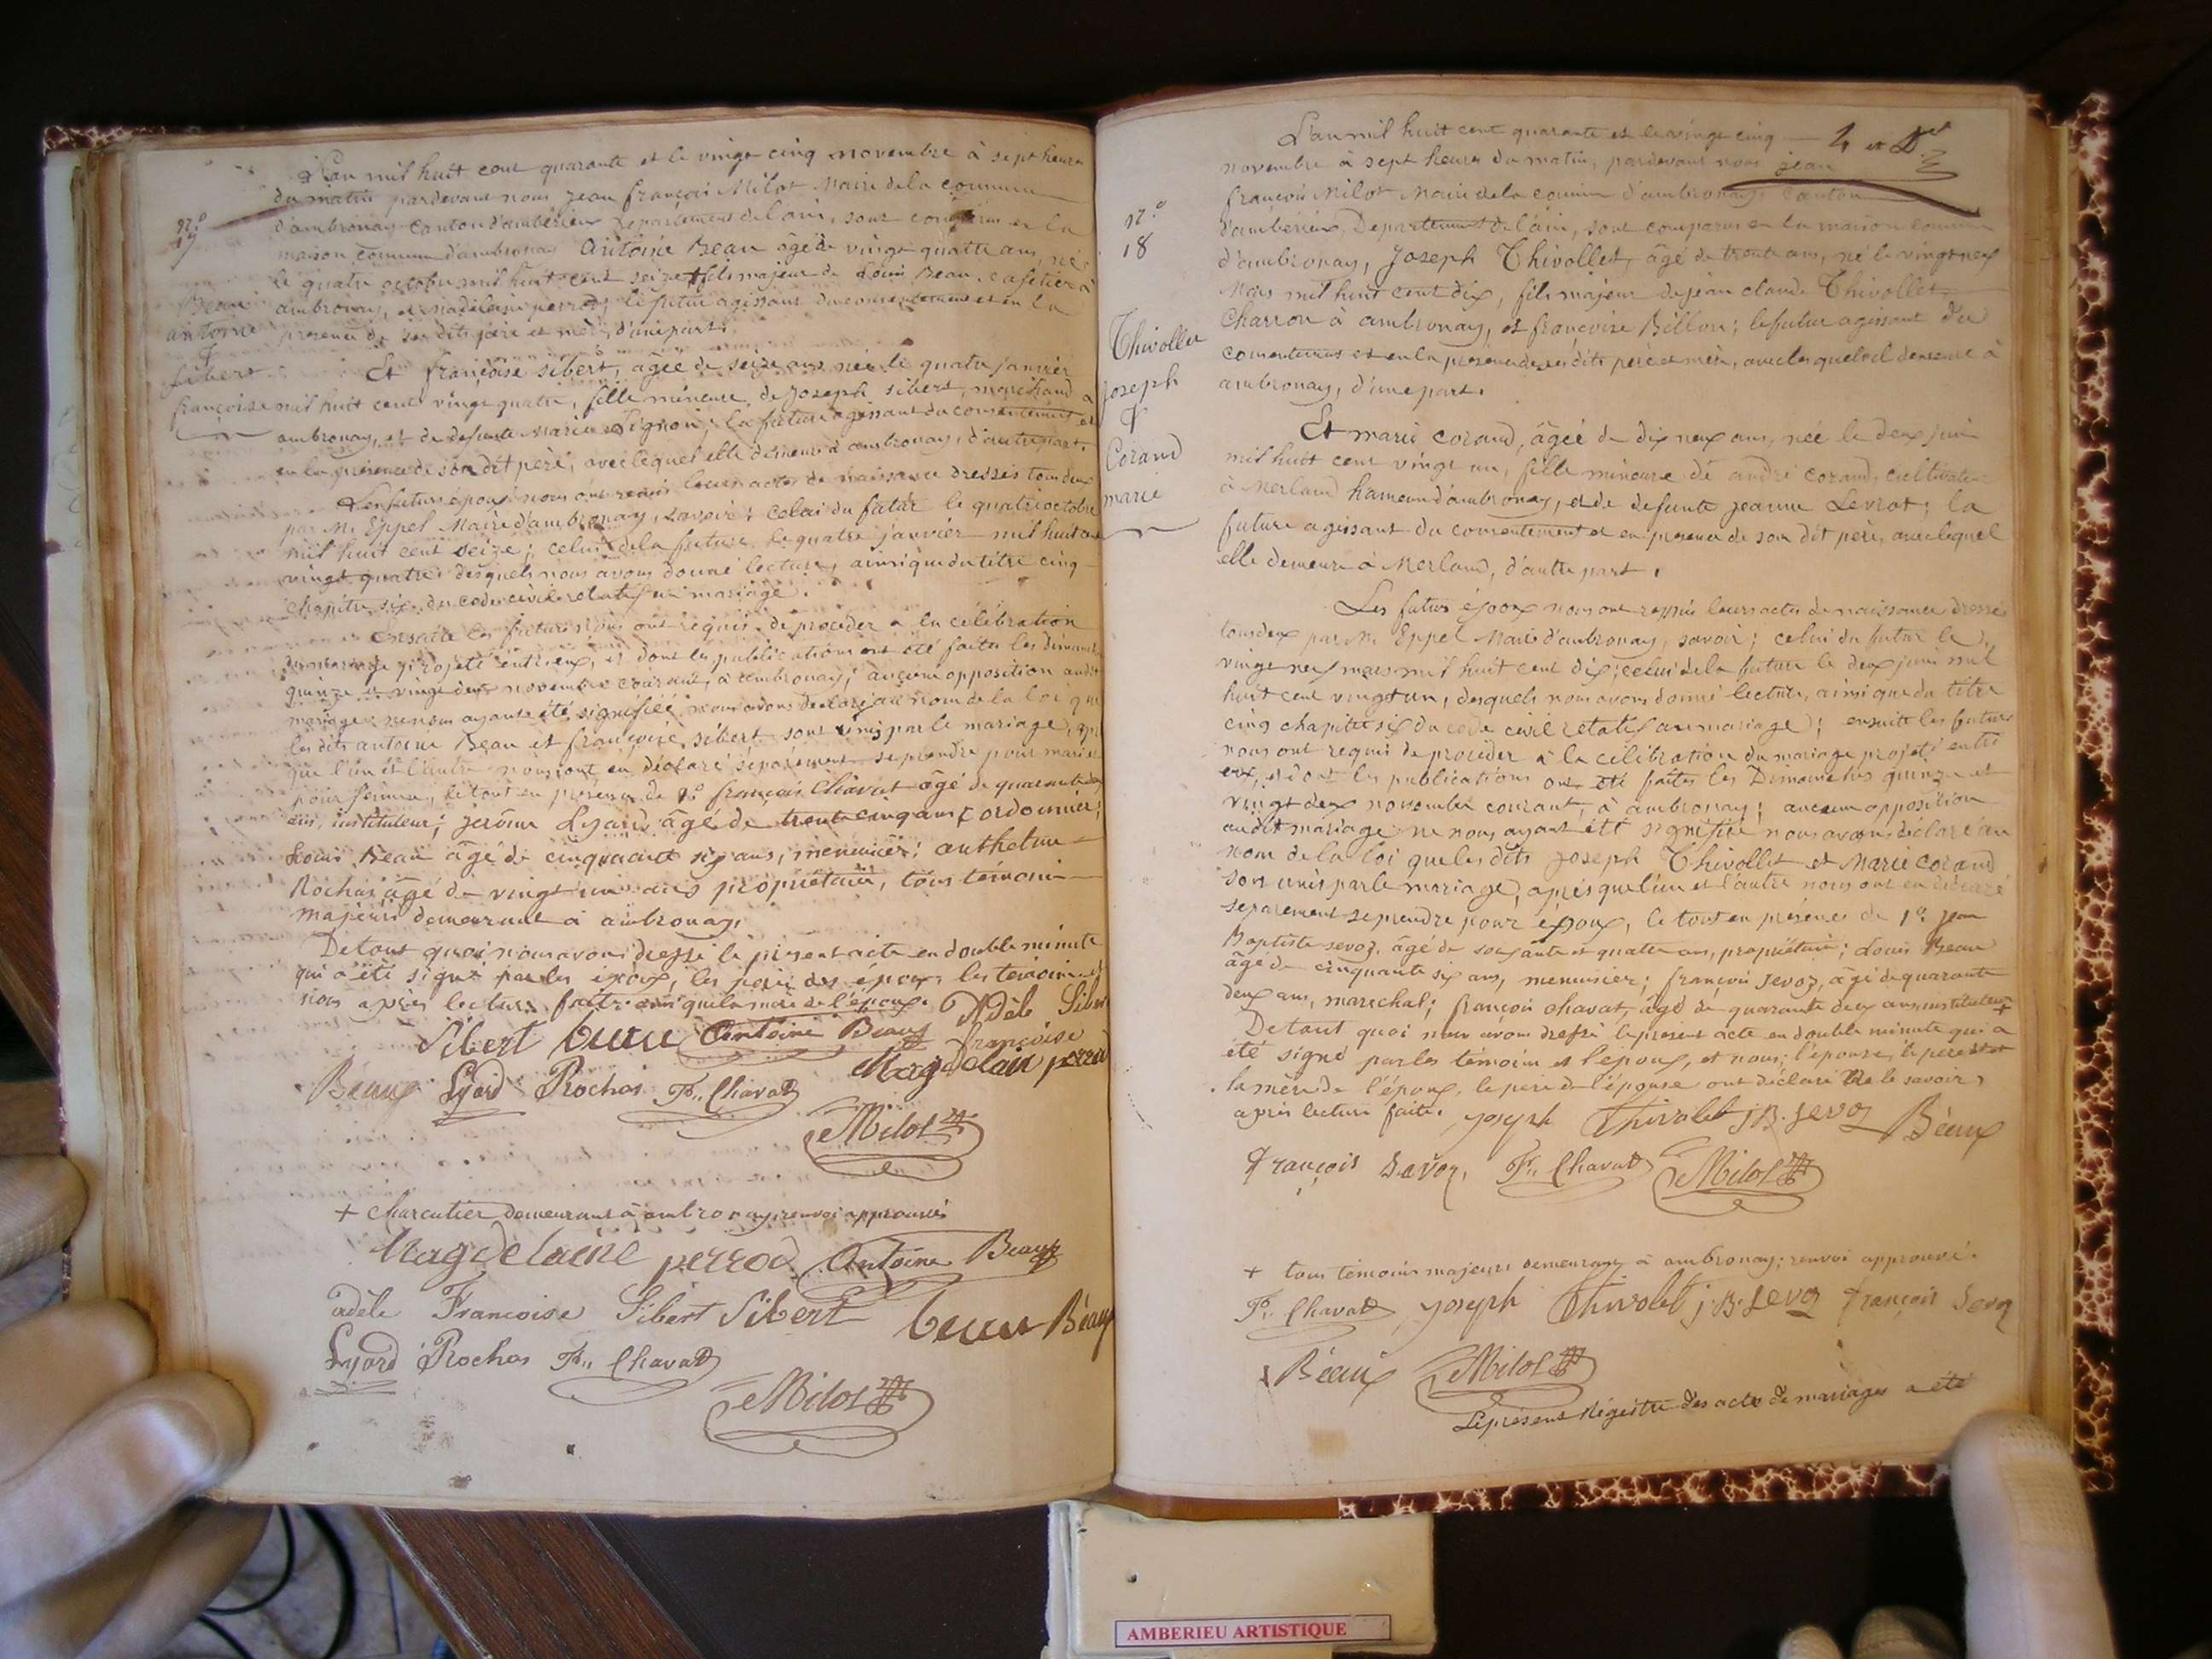 L'an mil huit cent quarante et le vingt cinq novembre à sept heures
du matin pardevant nous jean françois Milot Maire de la commune
d'ambronay canton d'ambérieux Departement de l'ain, sont comparus en la
maison commune d'ambronay Antoine Beau âgé de vingt quatre ans, né
le quatre octobre mil huit cent seize + fils majeur de Louis Beau, cafetier à
ambronay, et madelaine perrod; le futur agissant du consentement et en la
presence de ses dits père et mère, d'une part.
N.º
17
Beau
antoine
&
sibert
françoise
Et françoise sibert, âgée de seize ans née le quatre janvier
mil huit cent vingt quatre, fille mineure de Joseph sibert, marchand à
ambronay, et de defunte Marie; la future agissant du consentement et
en la présence de son dit père, avec lequel elle demeure à ambronay, d'autre part.
Les futurs époux nous ont remis leurs actes de naissance dressés tous deux
par M. Eppel Maire d'ambronay, savoir; celui du futur le quatre octobre
mil huit cent seize; celui de la future le quatre janvier mil huit cent
vingt quatre desquels nous avons donné lecture, ainsi que du titre cinq
chapitre six du code civil relatif au mariage.
Ensuite les futurs nous ont requis de proceder a la célébration
du mariage projeté entr'eux, et dont les publications ont été faites les dimanches
quinze et vingt deux novembre courant, à ambronay; aucune opposition audit
mariage ne nous ayant été signifiée nous avons declaré au nom de la loi que
les dits antoine Beau et françoise sibert sont unis par le mariage, après
que l'un et l'autre nous ont en déclaré séparement se prendre pour mari et
pour femme, le tout en presence de 1º françois Chavat âgé de quarante deux
ans, instituteur; jerôme Lyard âgé de trente cinq ans cordonnier;
Louis Beau âgé de cinquante six ans, menuisier; anthelme
Rochas âgé de vingt un ans propriétaire, tous témoins
majeurs demeurant à ambronay.
De tout quoi nous avons dressé le présent acte en double minute
qui a été signé par les époux, les pères des époux les témoins et
nous après lecture faite ainsi que la mère de l'époux. Adèle Sibert
Sibert beau Antoine Beau françoise
Béaux Lyard Rochas F. Chavat Magdelaine perrod
Milot
+ charcutier demeurant à ambronay, renvoi approuvés
Magdelaine perrod Antoine Beau
adèle Francoise Sibert Sibert beau Béaux
Lyard Rochas F. Chavat
Milot
L'an mil huit cent quarante et le vingt cinq 4 et Der
novembre à sept heures du matin, pardevant nous jean
françois Milot Maire de la commune d'ambronay, canton
d'ambérieux, Departement de l'ain, sont comparus en la maison commune
d'ambronay, Joseph Thivollet, âgé de trente ans, né le vingt neuf
Mars mil huit cent dix, fils majeur de jean claude Thivollet
Charron à ambronay, et françoise Billon; le futur agissant du
consentement et en la présence de ses dits père et mère, avec lesquels il demeure à
ambronay, d'une part.
N.º
18
Thivollet
joseph
&
Corand
marie
Et marie corand, âgée de dix neuf ans, née le deux juin
mil huit cent vingt un, fille mineure de andré corand, cultivateur
à Merland hameau d'ambronay, et de defunte jeanne Levrot; la
future agissant du consentement et en presence de son dit père, avec lequel
elle demeure à Merland, d'autre part.
Les futurs époux nous ont remis leurs actes de naissance dressés
tous deux par M. Eppel Maire d'ambronay, savoir; celui du futur le
vingt neuf mars mil huit cent dix; celui de la future le deux juin mil
huit cent vingt un, desquels nous avons donné lecture, ainsi que du titre
cinq chapitre six du code civil relatif au mariage; ensuite les futurs
nous ont requis de procéder à la célébration du mariage projeté entre
eux, et dont les publications ont été faites les Dimanches quinze et
vingt deux novembre courant, à ambronay; aucune opposition
audit mariage ne nous ayant été signifiée nous avons déclaré au
nom de la loi que les dits joseph Thivollet et Marie corand
sont unis par le mariage, après que l'un et l'autre nous ont en déclaré
separement se prendre pour époux, le tout en présence de 1º jean
Baptiste sevoz, âgé de soixante et quatre ans, propriétaire; Louis Beau
âgé de cinquante six ans, menuisier; françois sevoz, âgé de quarante
deux ans, marechal; françois chavat, âgé de quarante deux ans, instituteur +
De tout quoi nous avons dressé le present acte en double minute qui a
été signé par les témoins et l'époux, et nous; l'épouse, le père et
la mère de l'époux, le père de l'épouse ont déclaré ne le savoir,
après lecture faite. joseph Thivolet j B. Sevoz Béaux
françois Sevoz, F. Chavat Milot
+ tous témoins majeurs demeurant à ambronay; renvoi approuvé.
F. Chavat joseph Thivolet j. B. Sevoz françois Sevoz
Béaux Milot
Le présent Registre des actes de mariages a été
AMBERIEU ARTISTIQUE